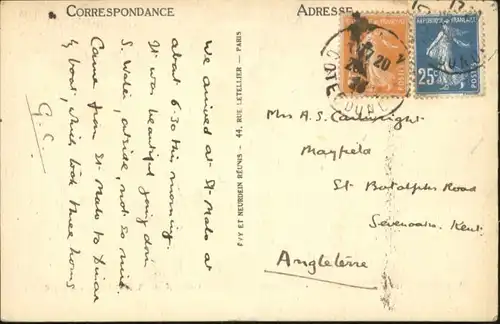 CORRESPONDANCE
ADRESSE
We arrived at St. Malo at
about 6-30 this morning.
It was beautiful going down
S. Water, outside, not so nice.
Came from St Malo to Dinar
by boat, which took three hours
G. C.
LEVY ET NEURDEIN RÉUNIS — 44, RUE LETELLIER — PARIS
RÉPUBLIQUE FRANÇAISE
25c
POSTES
17 20
COTE
Mrs A. S. Cartwright
Mayfield
St Botolphs Road
Sevenoaks. Kent.
Angleterre